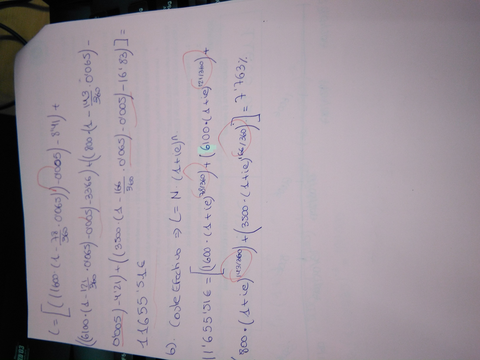 C = [((1600 · (1 - 78/360 · 0'065) - 0'005) - 8'41) +
((6100 · (1 - 121/360 · 0'065 - 0'005) - 33'66) + ((800 · (1 - 143/360 · 0'065) -
0'005) - 4'21) + ((3500 · (1 - 166/360 · 0'065 - 0'005) - 16'83)] =
11655'516
b) Coste Efectivo ⇒ C = N · (1+ie)^n
11.655'516 = [(1600 · (1+ie)^(78/360)) + (6100 · (1+ie)^(121/360)) +
800 · (1+ie)^(143/360)) + (3500 · (1+ie)^(166/360))] = 7'763%